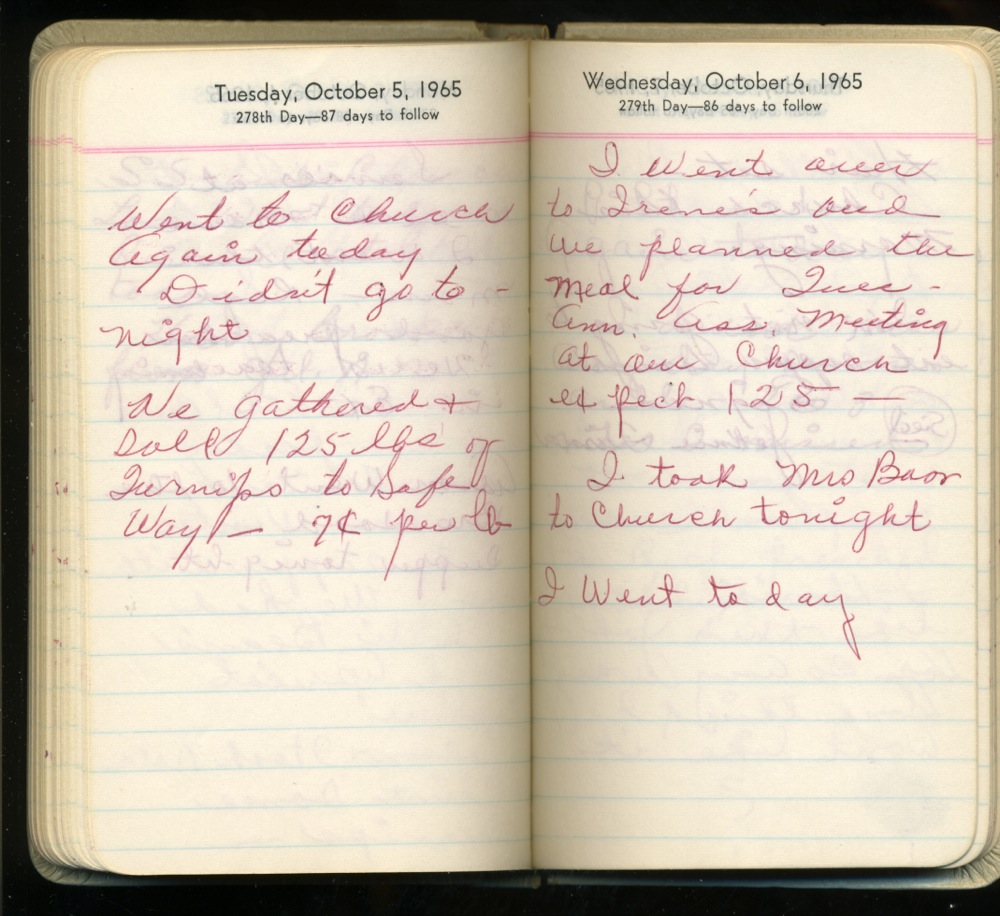 Tuesday, October 5, 1965
278th Day—87 days to follow
Went to Church
Again today
Didn't go to -
night
We gathered +
Sold 125 lbs of
Turnips to Safe
Way — 7¢ per lb
Wednesday, October 6, 1965
279th Day—86 days to follow
I went over
to Irene's and
we planned the
Meal for Tues -
Ann. Ass. Meeting
at our Church
expect 125 —
I took Mrs
to Church tonight
I Went today